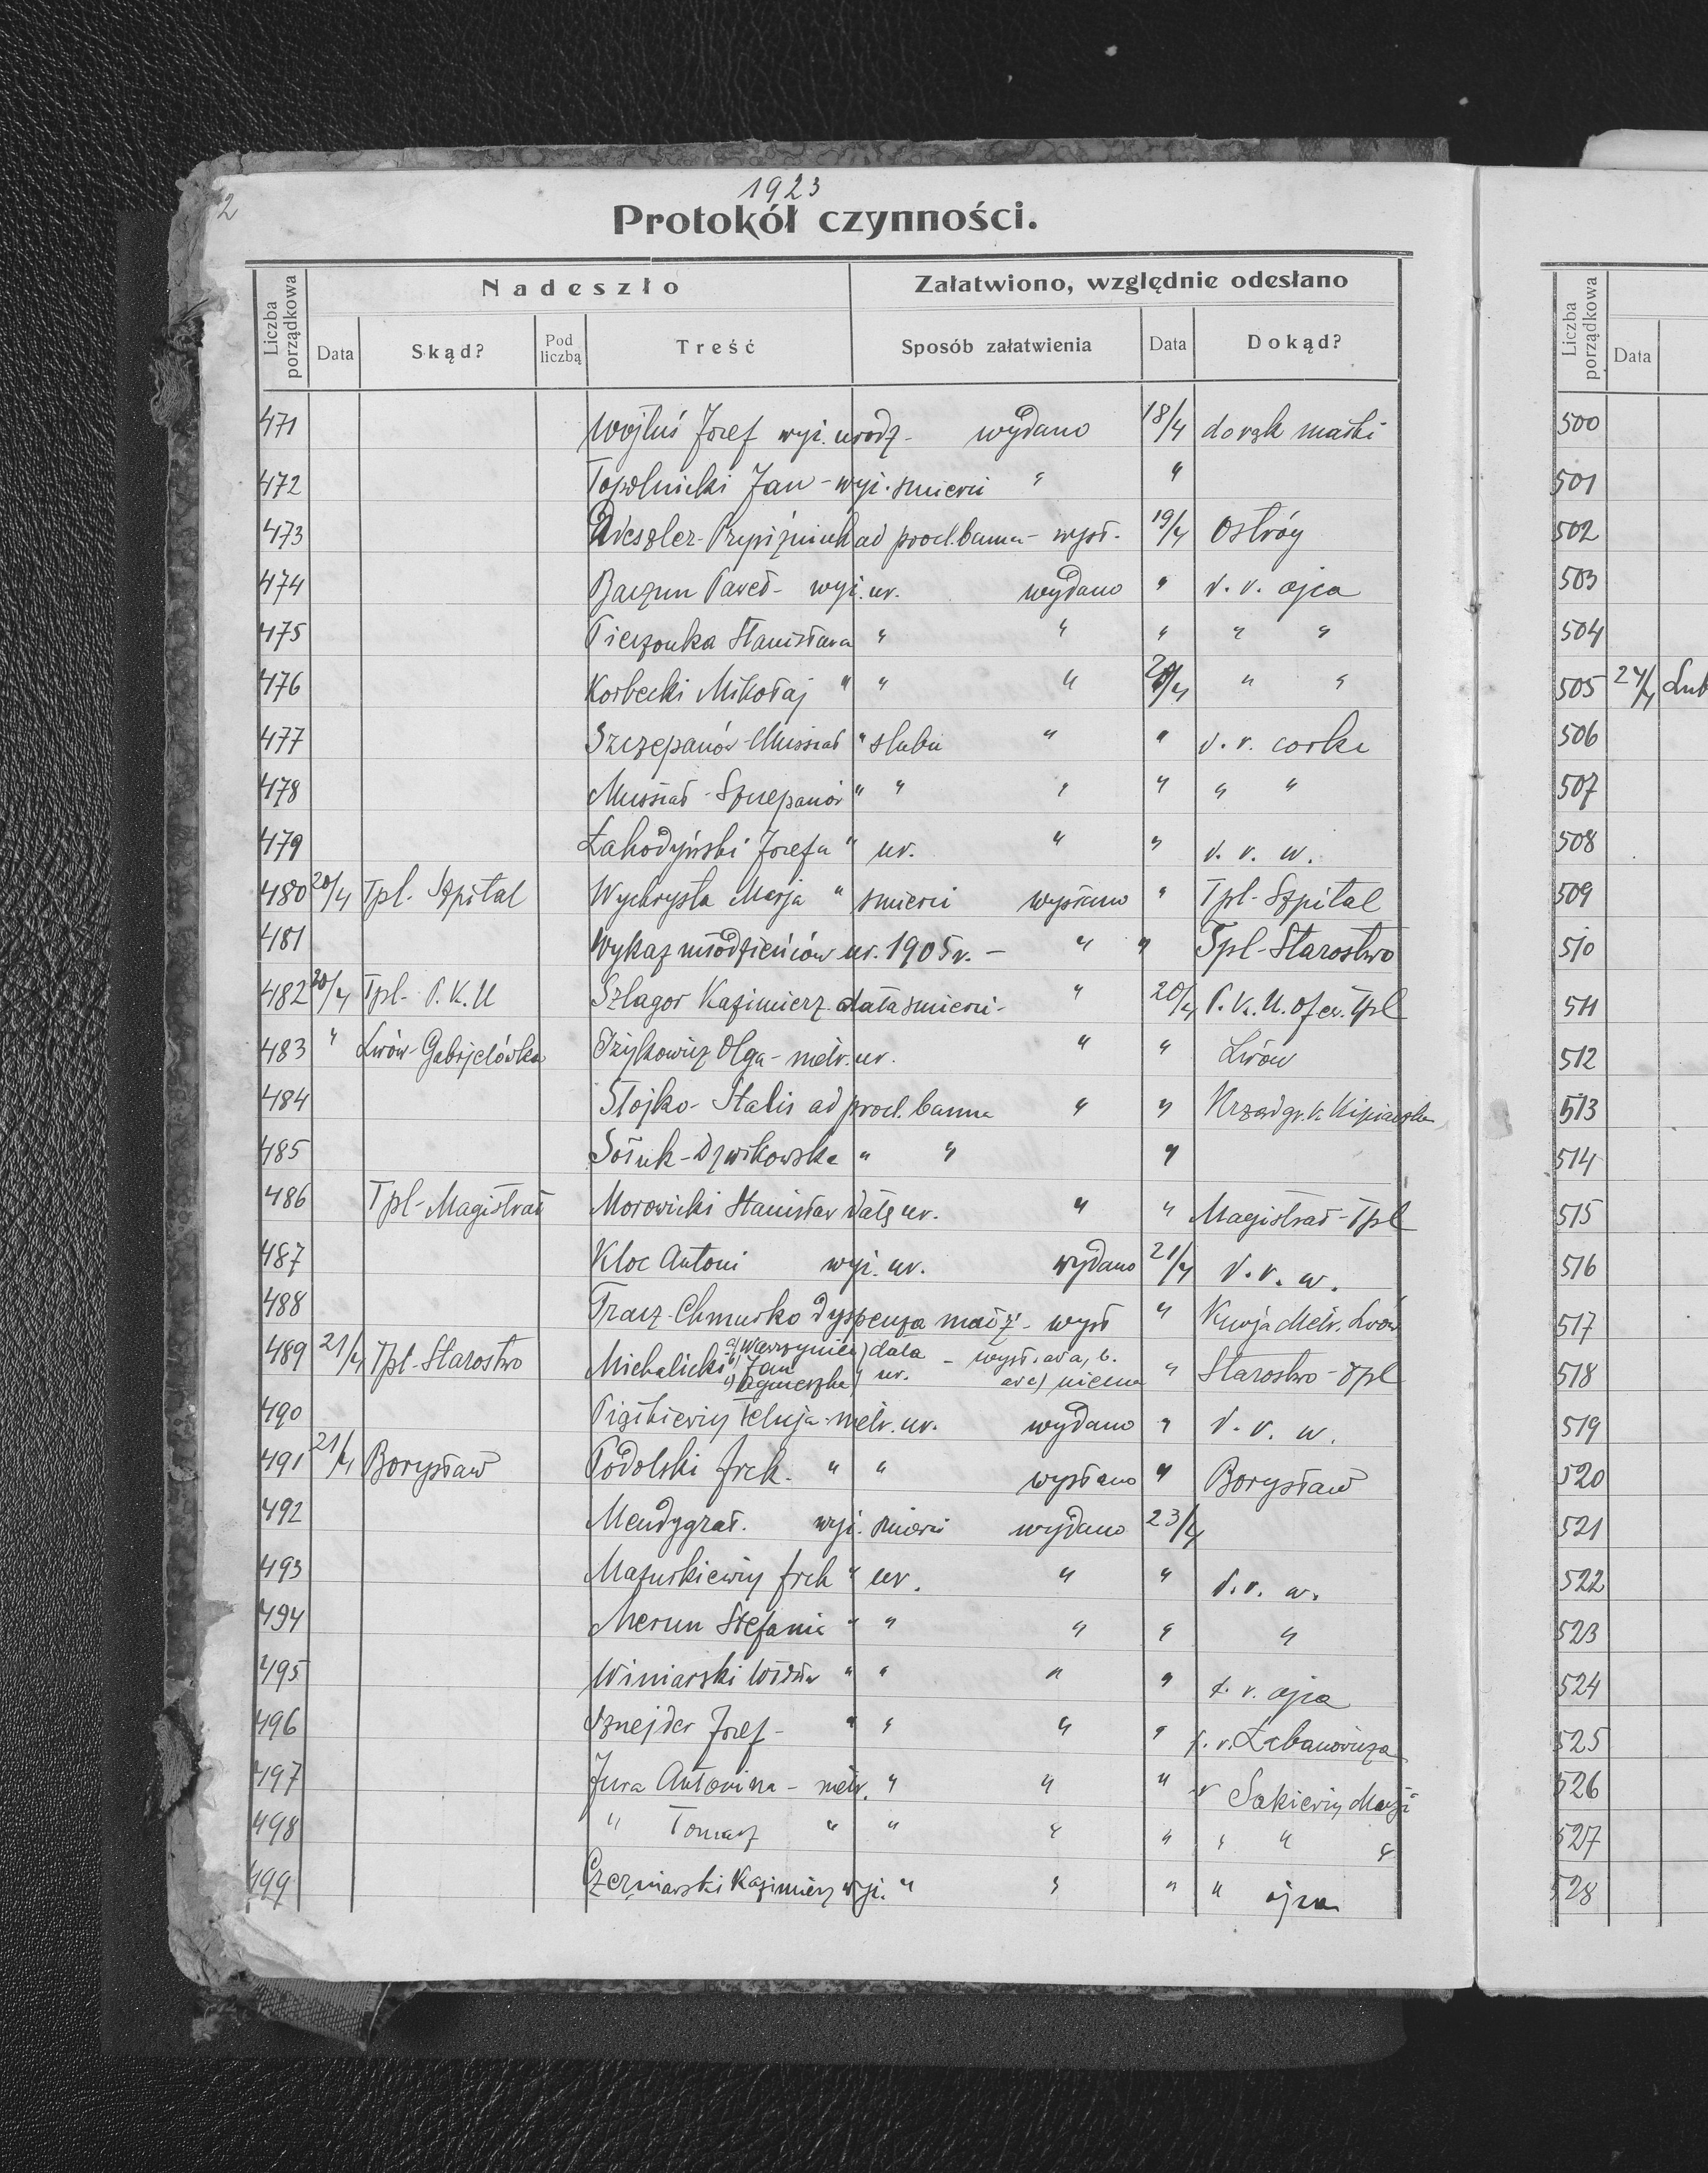 2
1923
Protokół czynności.
Liczba porządkowa Nadeszło Załatwiono, względnie odesłano
Data Skąd? Pod liczbą Treść Sposób załatwienia Data Dokąd?
471 Wojtuś Józef wyi. urodz - wydano 18/4 do rąk matki
472 Topolnicki Jan - wyi. smierci " "
473 ad procl. banna - wysł. 19/4 Ostróg
474 Baczun Paweł - wyi. ur. wydano " d. r. ojca
475 Pierzonka Stanisława " " " " "
476 Korbecki Mikołaj " " " 20/4 " "
477 Szczepanów - Mussiał " slubu " " d. r. corki
478 Mussiał - Szczepanów " " " " " "
479 Łahodyński Józefa " ur. " " d. r. w.
480 20/4 Tpl. Szpital Wychrysta Marja " smierci wysłano " Tpl - Szpital
481 Wykaz młodzieńców ur. 1905 r. - " " Tpl - Starostwo
482 20/4 Tpl - P. K. U Szlagor Kazimierz data smierci - " 20/4 P. K. U. Tpl
483 " Lwów - Gabrjelówka Olga - metr. ur. " " Lwów
484 Stojko - Stalis ad procl. banna " " Urząd gr. k.
485 Sołuk - Dzwikowska " " "
486 Tpl - Magistrat Morowicki Stanisław datę ur. " " Magistrat - Tpl
487 Kloc Antoni wyi. ur. wydano 21/4 d. r. w.
488 Tracz - Chmurko dyspenza małż - wysł " Kurja Metr. Lwów
489 21/4 Tpl - Starostwo Michalicki a) Wawrzyniec b) Jan c) Agnieszka data ur. - wysł. ad a, b. ad c) niema " Starostwo - Tpl
490 metr. ur. wydano " d. r. w.
491 21/4 Borysław Podolski frck. " " wysłano " Borysław
492 Mendygrał. wyi. smierci wydano 23/4
493 Mazurkiewicz frck " ur. " " d. r. w.
494 Merun Stefania " " " " "
495 Winiarski " " " " d. r. ojca
496 Sznejder Józef - " " " " d. r. Łabanowicza
497 Jura Antonina - metr. " " " r Sakiewicz Marji
498 " Tomasz " " " " " " "
499 Czerniawski Kazimierz wyi. " " " " ojca
Liczba porządkowa
Data
500
501
502
503
504
505 24/4 Lub
506
507
508
509
510
511
512
513
514
515
516
517
518
519
520
521
522
523
524
525
526
527
528